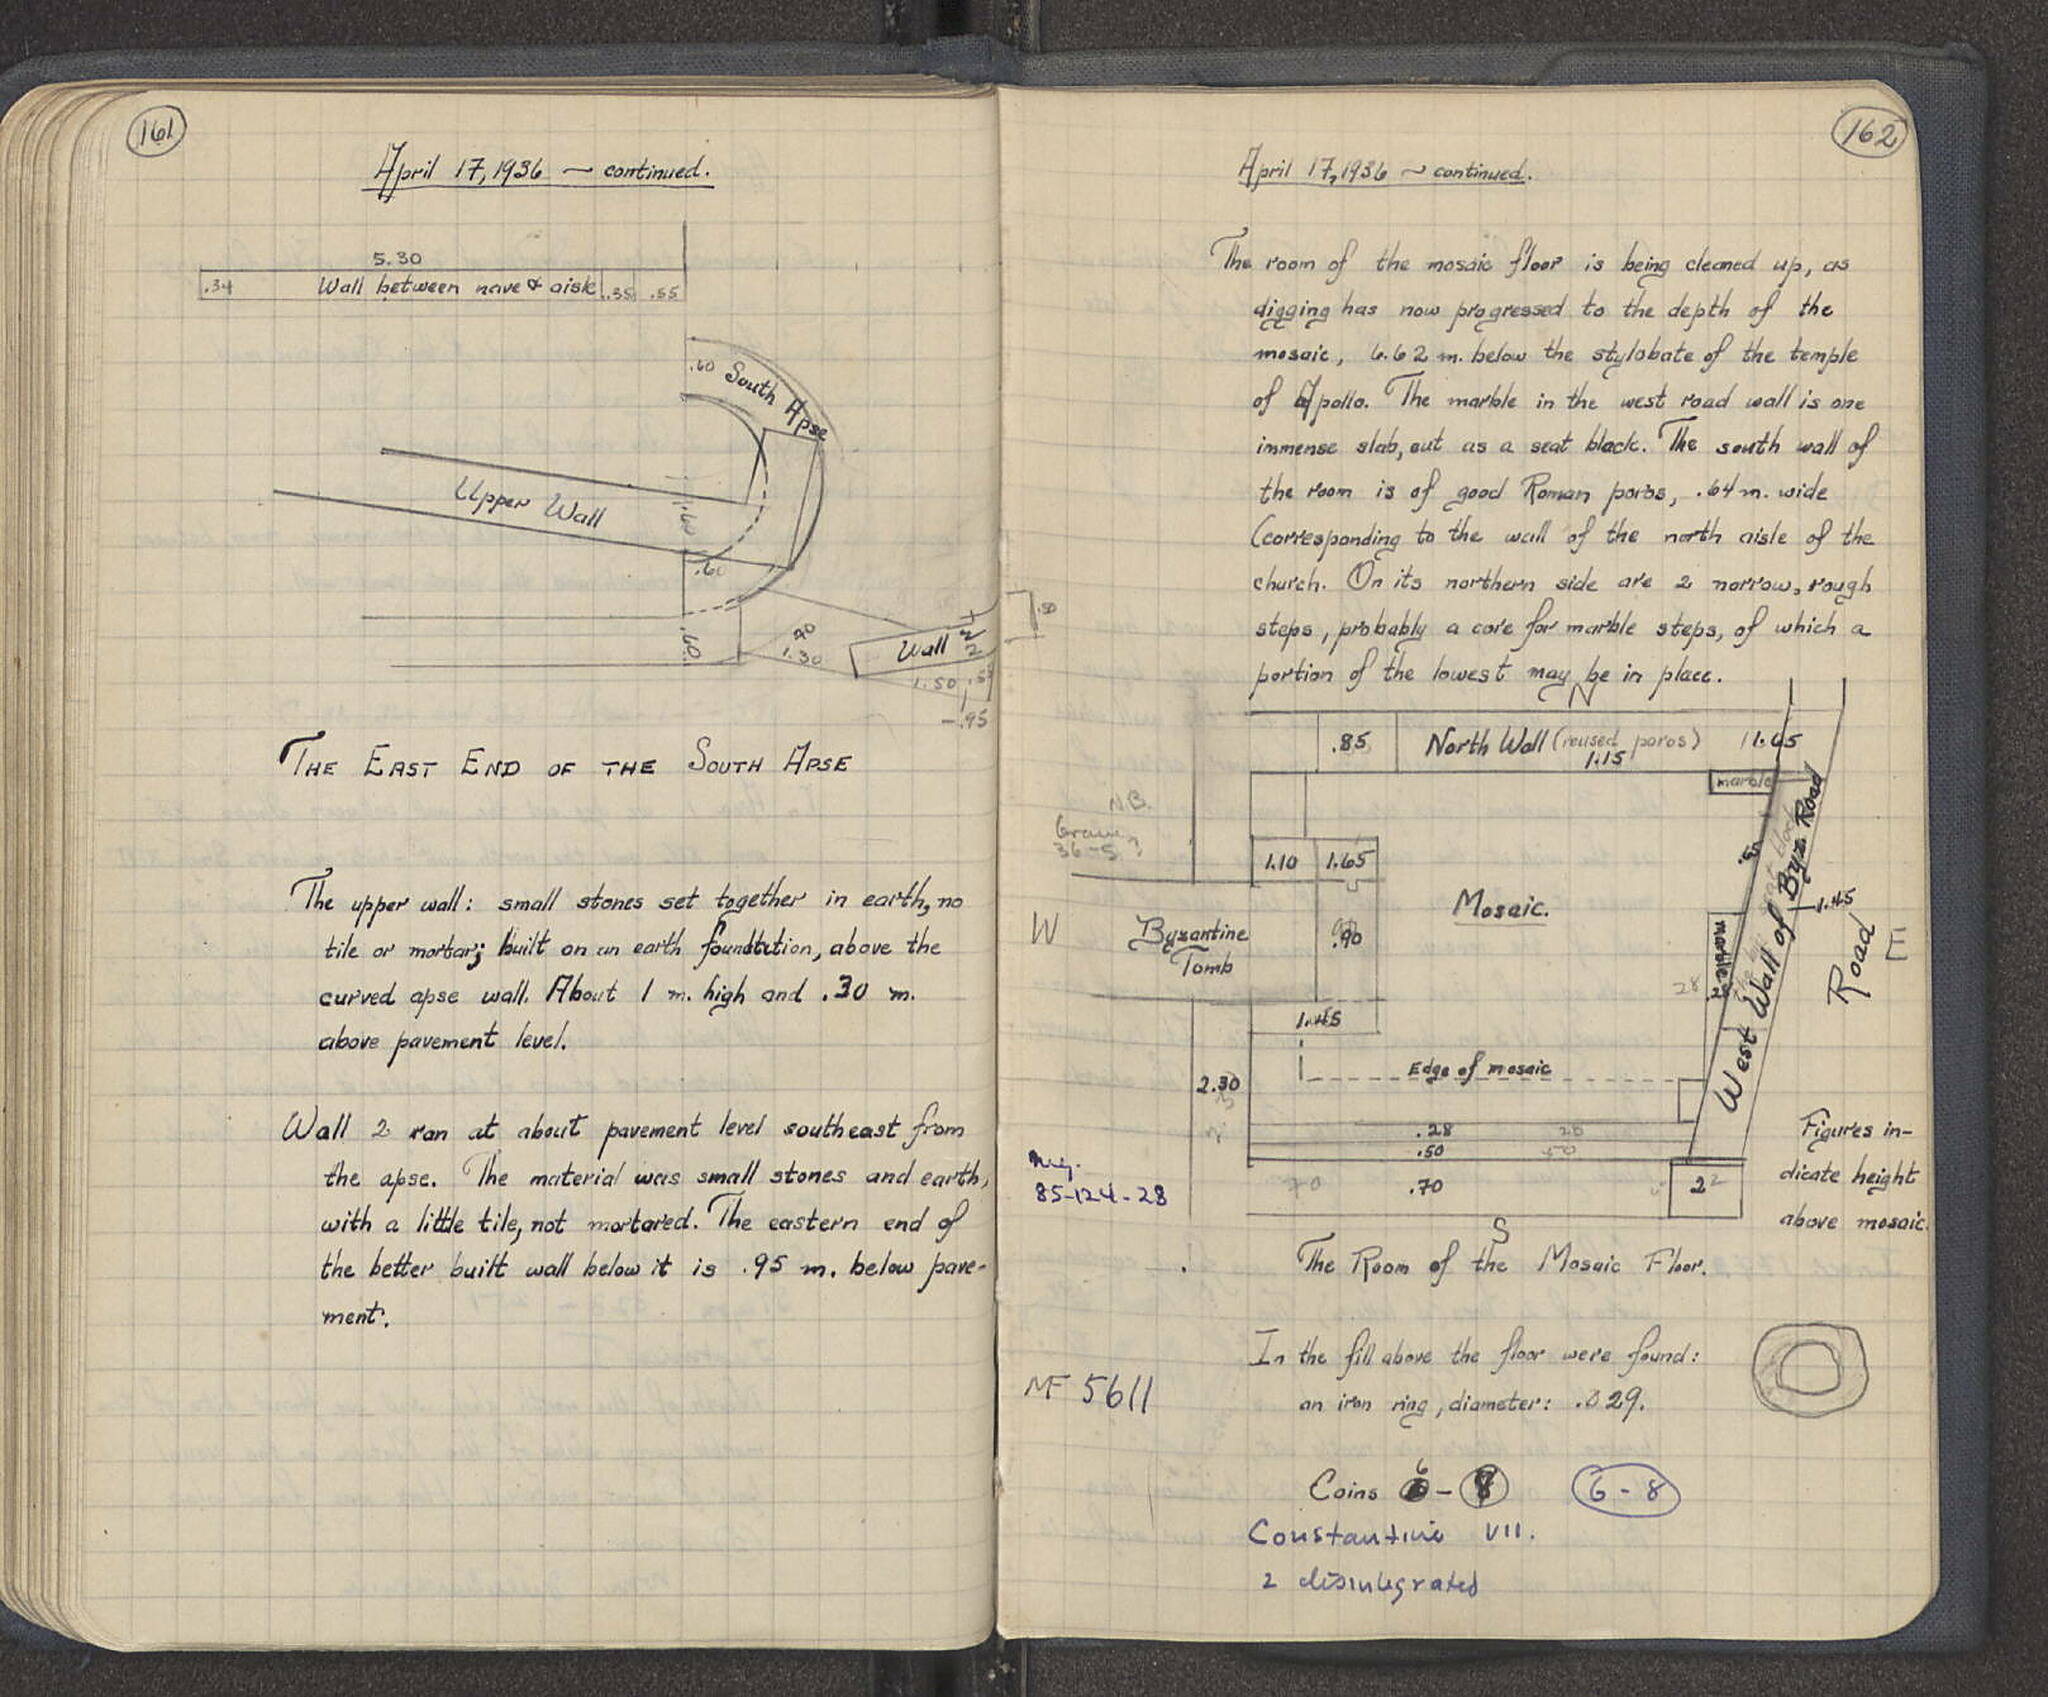 161
April 17, 1936 ~ continued.
5.30
.34 Wall between nave & aisle .35 .55
.60 South Apse
Upper Wall
.60
.60
.60
.90
1.30
Wall 2
1.50
-.95
THE EAST END OF THE SOUTH APSE
The upper wall: small stones set together in earth, no
tile or mortar; built on an earth foundtution, above the
curved apse wall. About 1 m. high and .30 m.
above pavement level.
Wall 2 ran at about pavement level southeast from
the apse. The material was small stones and earth,
with a little tile, not mortared. The eastern end of
the better built wall below it is .95 m. below pave-
ment.
162
April 17, 1936 ~ continued.
The room of the mosaic floor is being cleaned up, as
digging has now progressed to the depth of the
mosaic, 6.62 m. below the stylobate of the temple
of Apollo. The marble in the west road wall is one
immense slab, cut as a seat block. The south wall of
the room is of good Roman poros, .64 m. wide
(corresponding to the wall of the north aisle of the
church. On its northern side are 2 narrow, rough
steps, probably a core for marble steps, of which a
portion of the lowest may be in place.
.50
N
.85 North Wall (reused poros) 1.65
1.15
marble
N.B.
Grave
36-5?
1.10 1.65
W
Byzantine
Tomb
.90
Mosaic.
marble
.28
28
West Wall of Byz. Road
1.45
Road
E
1.45
2.30
Edge of mosaic
.28 28
.50 50
70 .70
2 2
S
Figures in-
dicate height
above mosaic.
neg.
85-124-28
The Room of the Mosaic Floor.
In the fill above the floor were found:
an iron ring, diameter: .029.
MF 5611
Coins 6 - 8 6 - 8
Constantine VII.
2 disintegrated